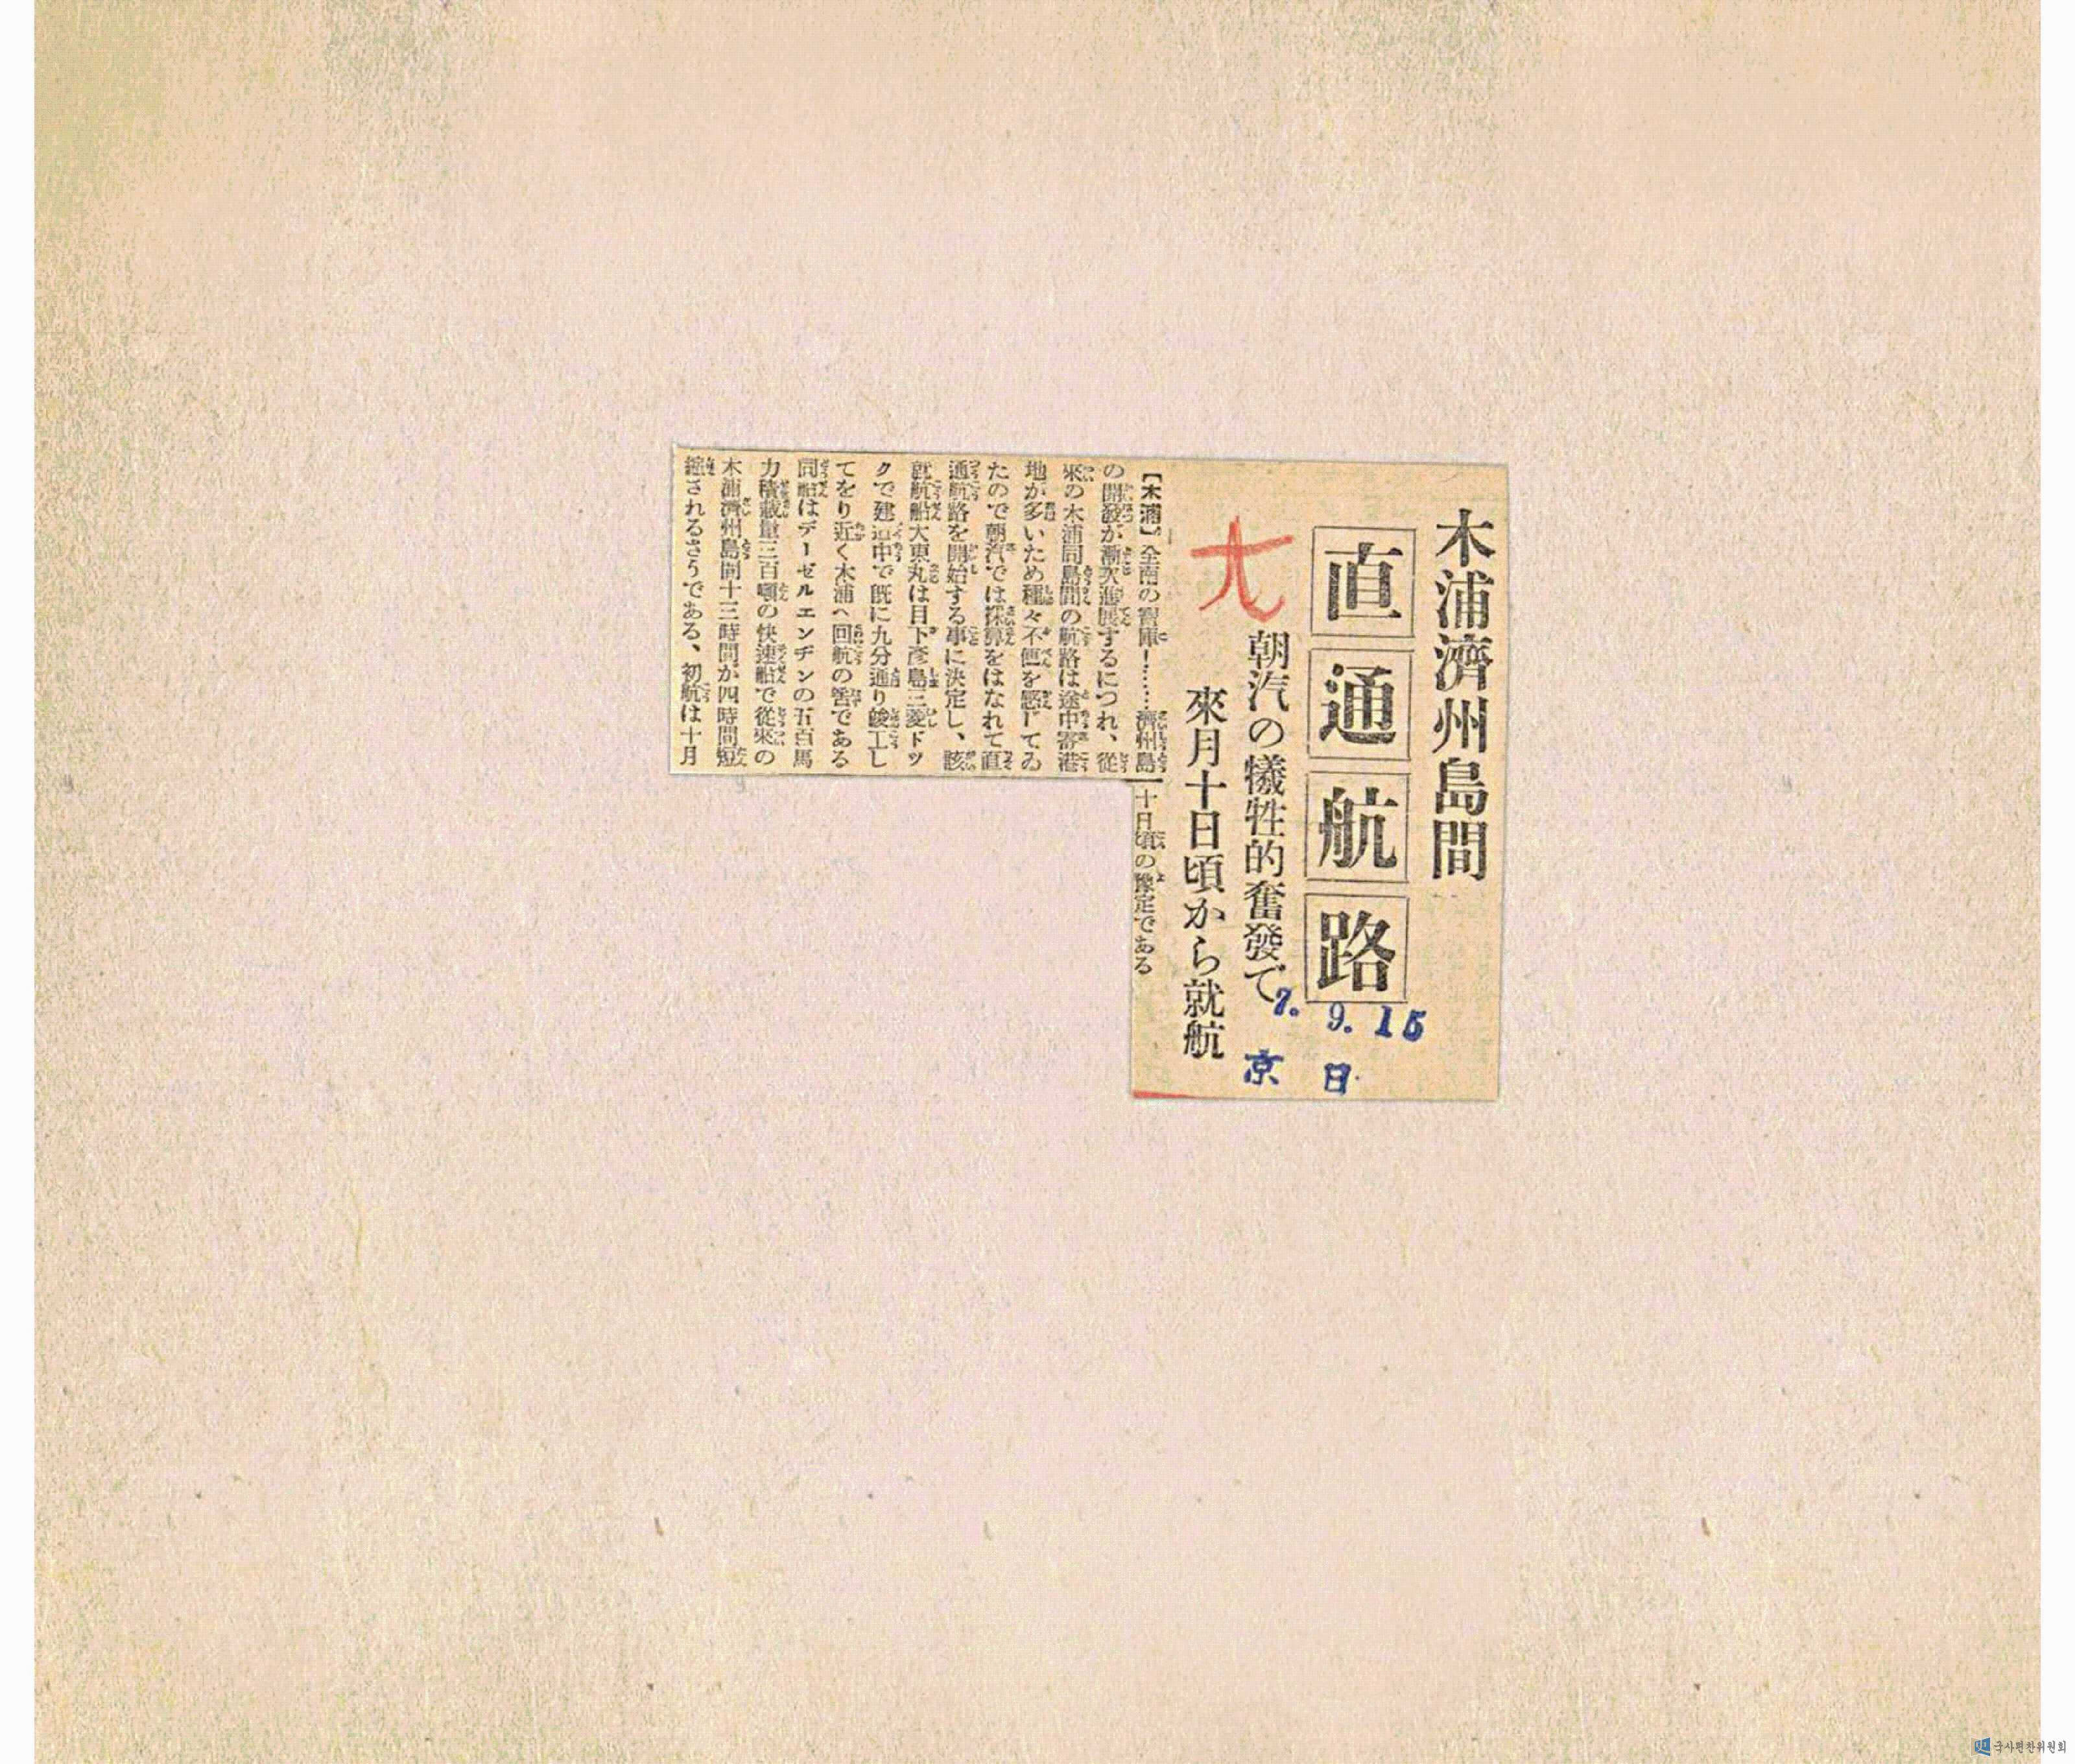 木浦濟州島間
直通航路
朝汽の犠牲的奮發で
來月十日頃から就航
7. 9. 15
京日
【木浦】全南の寶庫！……濟州島
の開發が漸次進展するにつれ、從
來の木浦同島間の航路は途中寄港
地が多いため種々不便を感じてゐ
たので朝汽では採算をはなれて直
通航路を開始する事に決定し、該
就航船大東丸は目下彦島三菱ドツ
クで建造中で既に九分通り竣工し
てをり近く木浦へ回航の筈である
同船はデーゼルエンヂンの五百馬
力積載量三百噸の快速船で從來の
木浦濟州島間十三時間か四時間短
縮されるさうである、初航は十月
十日頃の豫定である
국사편찬위원회